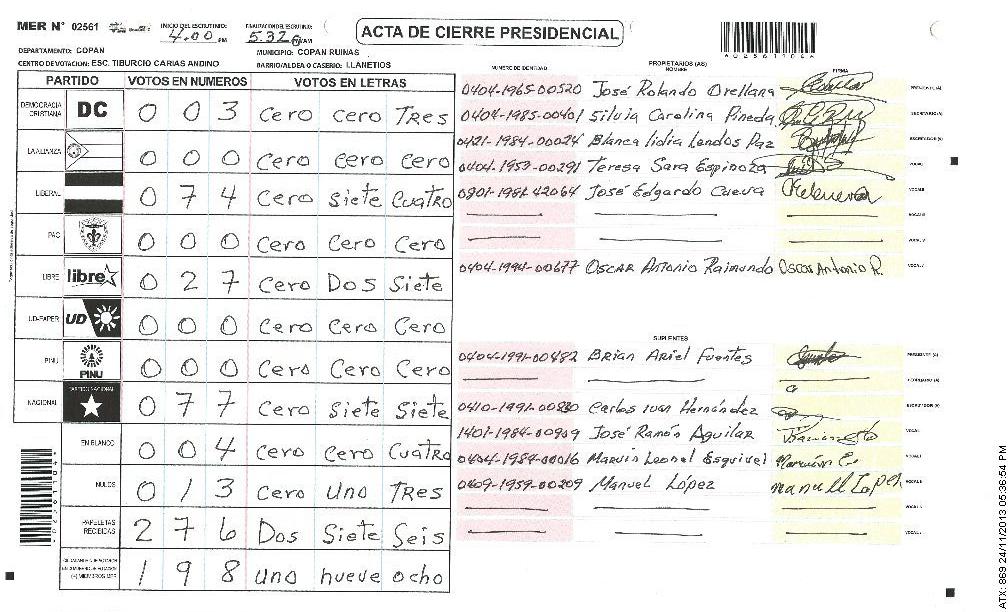 MER N° 02561 INICIO DEL ESCRUTINIO: 4:00 PM FINALIZACION DEL ESCRUTINIO: 5.32 PM
ACTA DE CIERRE PRESIDENCIAL
DEPARTAMENTO: COPAN MUNICIPIO: COPAN RUINAS
CENTRO DE VOTACION: ESC. TIBURCIO CARIAS ANDINO BARRIO/ALDEA O CASERIO: LLANETIOS
PARTIDO VOTOS EN NUMEROS VOTOS EN LETRAS
DEMOCRACIA CRISTIANA DC 0 0 3 Cero Cero Tres
LA ALIANZA 0 0 0 Cero Cero Cero
LIBERAL 0 7 4 Cero Siete Cuatro
PAC 0 0 0 Cero Cero Cero
LIBRE libre 0 2 7 Cero Dos Siete
UD-FAPER UD 0 0 0 Cero Cero Cero
PINU PINU 0 0 0 Cero Cero Cero
NACIONAL PARTIDO NACIONAL 0 7 7 Cero Siete Siete
EN BLANCO 0 0 4 Cero Cero Cuatro
NULOS 0 1 3 Cero Uno Tres
PAPELETAS RECIBIDAS 2 7 6 Dos Siete Seis
1 9 8 Uno nueve ocho
NUMERO DE IDENTIDAD PROPIETARIOS (AS) NOMBRE FIRMA
0404-1965-00520 José Rolando Orellana PRESIDENTE (A)
0404-1985-00401 Silvia Carolina Pineda SECRETARIO (A)
0421-1984-00024 Blanca lidia Landos Paz ESCRUTADOR (A)
0404-1953-00291 Teresa Sara Espinoza VOCAL I
0801-1981-42064 José Edgardo Cueva VOCAL II
0404-1994-00677 Oscar Antonio Raimundo Oscar Antonio R.
SUPLENTES
0404-1991-00482 Brian Ariel Fuentes PRESIDENTE (A)
SECRETARIO (A)
Carlos Ivan Hernández ESCRUTADOR (A)
1401-1984-00909 José Ramón Aguilar
0404-1984-00016 Marvin Leonel Esquivel
0409-1959-00209 Manuel López
ATX: 869 24/11/2013 05:36:54 PM